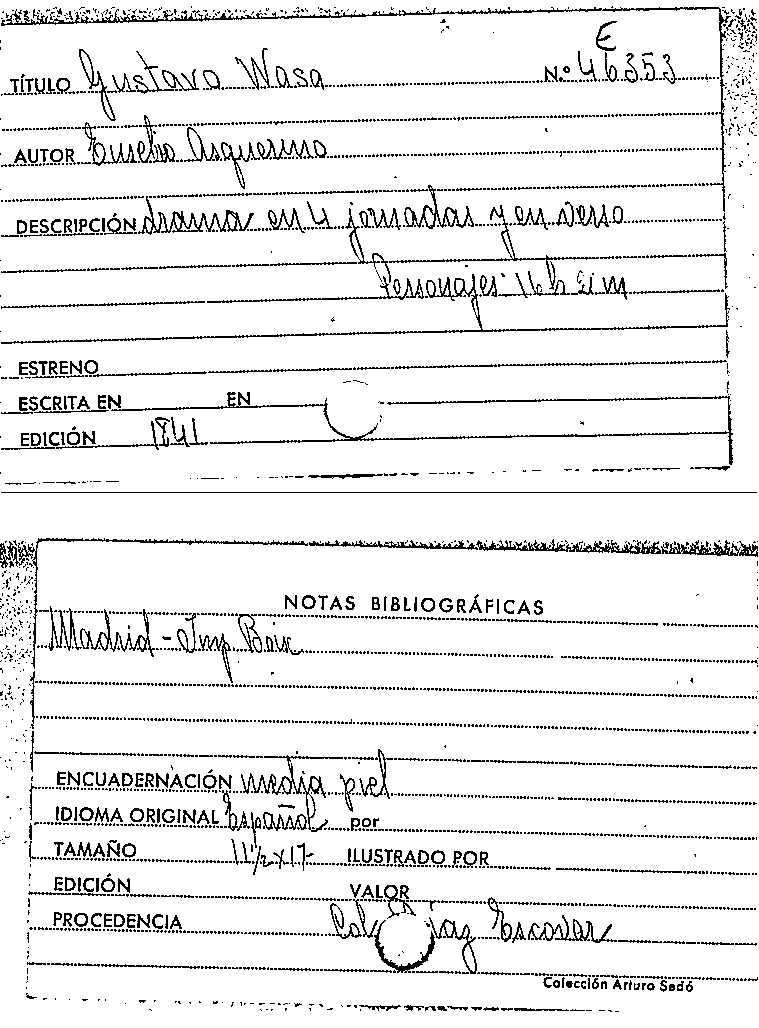 E
TÍTULO Gustavo Wasa N.º 46353
AUTOR Eusebio Asquerino
DESCRIPCIÓN drama en 4 jornadas y en verso
Personajes: 16 h m
ESTRENO
ESCRITA EN EN
EDICIÓN 1841
NOTAS BIBLIOGRÁFICAS
Madrid - Imp Boix
ENCUADERNACIÓN media piel
IDIOMA ORIGINAL Español por
TAMAÑO 11½ x 17- ILUSTRADO POR
EDICIÓN VALOR
PROCEDENCIA Col Díaz Escovar
Colección Arturo Sedó